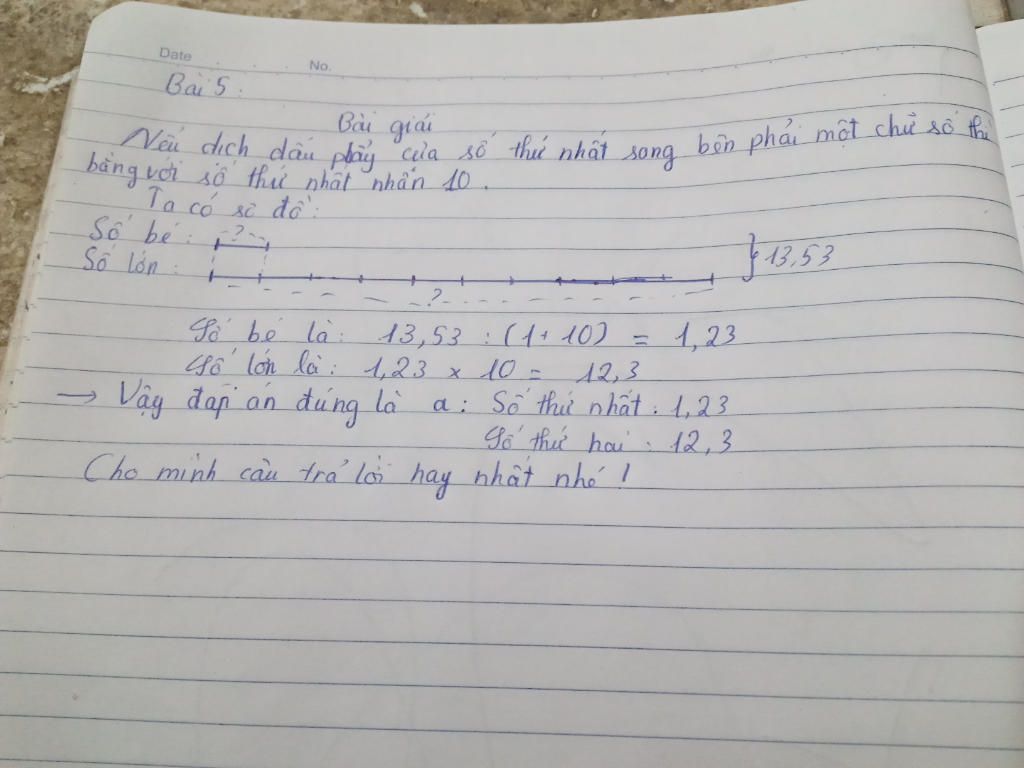 Date No.
Bài 5:
Bài giải
Nếu dịch dấu phẩy của số thứ nhất sang bên phải một chữ số thì
bằng với số thứ nhất nhân 10.
Ta có sơ đồ:
Số bé: ?
Số lớn: } 13,53
?
Số bé là: 13,53 : (1+10) = 1,23
Số lớn là: 1,23 x 10 = 12,3
→ Vậy đáp án đúng là a: Số thứ nhất: 1,23
Số thứ hai: 12,3
Cho mình câu trả lời hay nhất nhé!